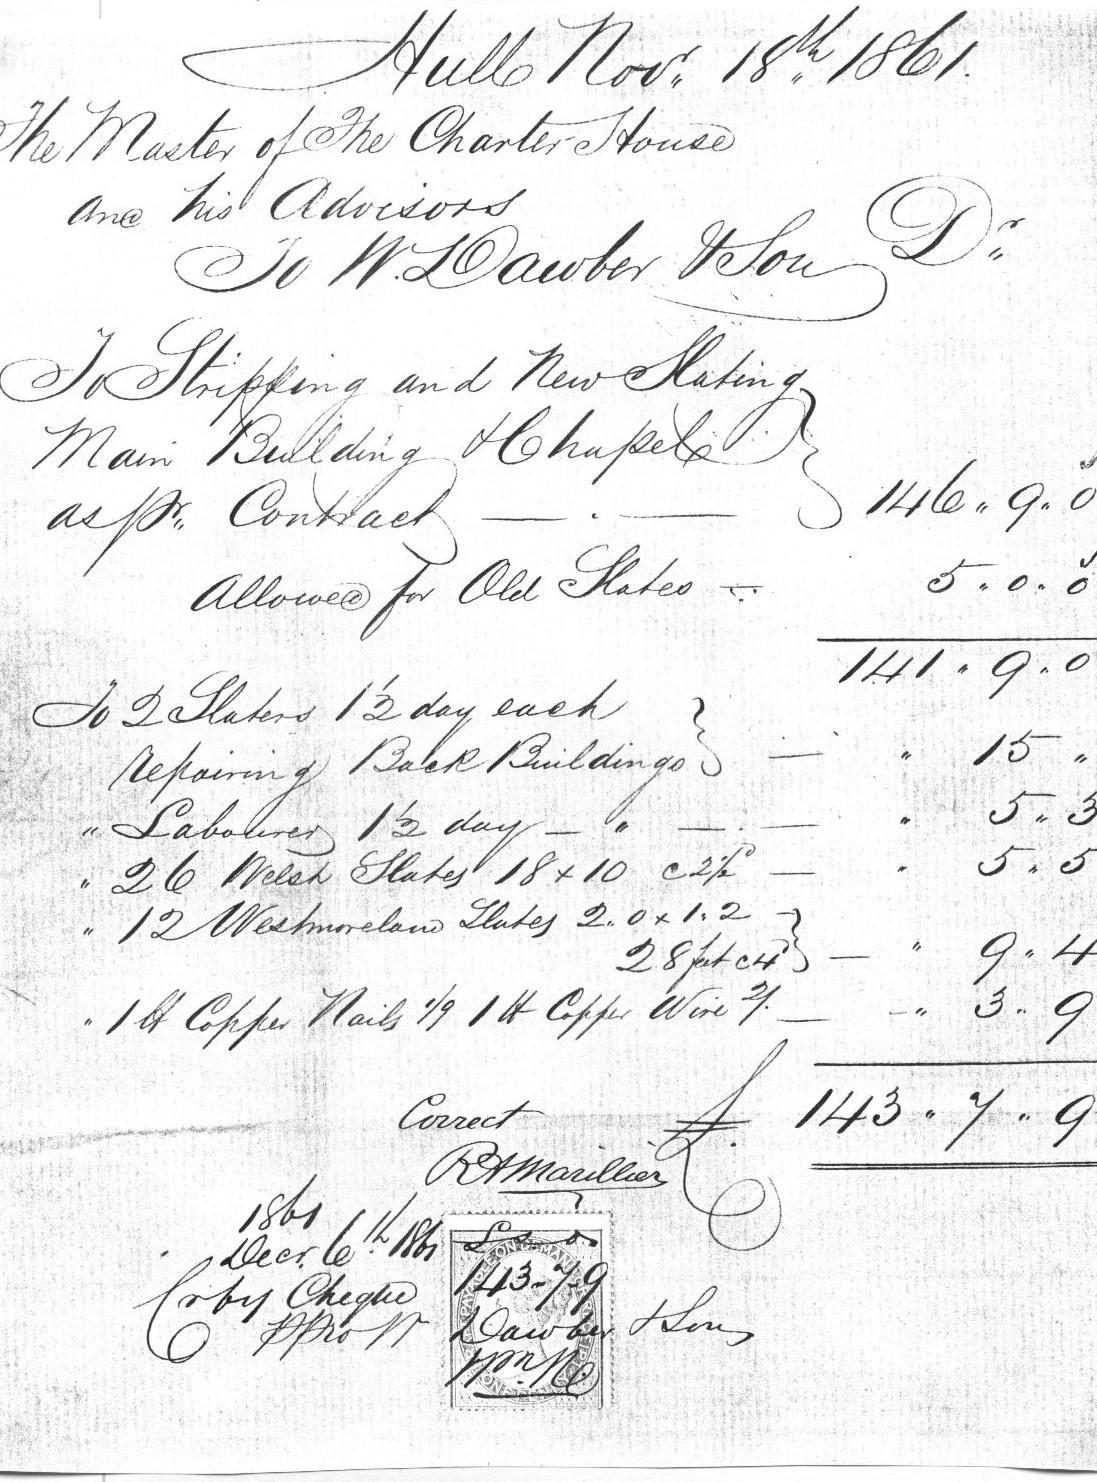 Hull Nov.r 18.th 1861.
The Master of The Charter House
and his Advisors
To W. Dawber & Son Dr
To Stripping and New Slating
Main Building & Chapel
as pr. Contract — . — 146 " 9 " 0
Allowed for Old Slates — 5 " 0 " 0
141 " 9 " 0
To 2 Slaters 1½ day each
repairing Back Buildings — " 15 "
" Labourer 1½ day — " — . — " 5 " 3
" 26 Welsh Slates 18 x 10 c 2½d — " 5 " 5
" 12 Westmoreland Slates 2 " 0 x 1 " 2
28 feet c 4d — " 9 " 4
" 1 lb Copper Nails 1/9 1 lb Copper Wire 2/. — " 3 " 9
£ 143 " 7 " 9
Correct
R A Marillier
1861
Decr. 6th 1861 £ s d
Cr by Cheque 143-7-9
ppro W Dawber & Son